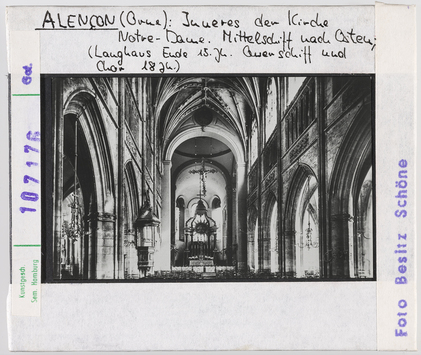 ALENÇON (Orne): Inneres der Kirche
Notre-Dame. Mittelschiff nach Osten;
(Langhaus Ende 15. Jh. Querschiff und
Chor 18 Jh.)
Foto Besitz Schöne
Kunstgesch.
Sem. Hamburg
107176